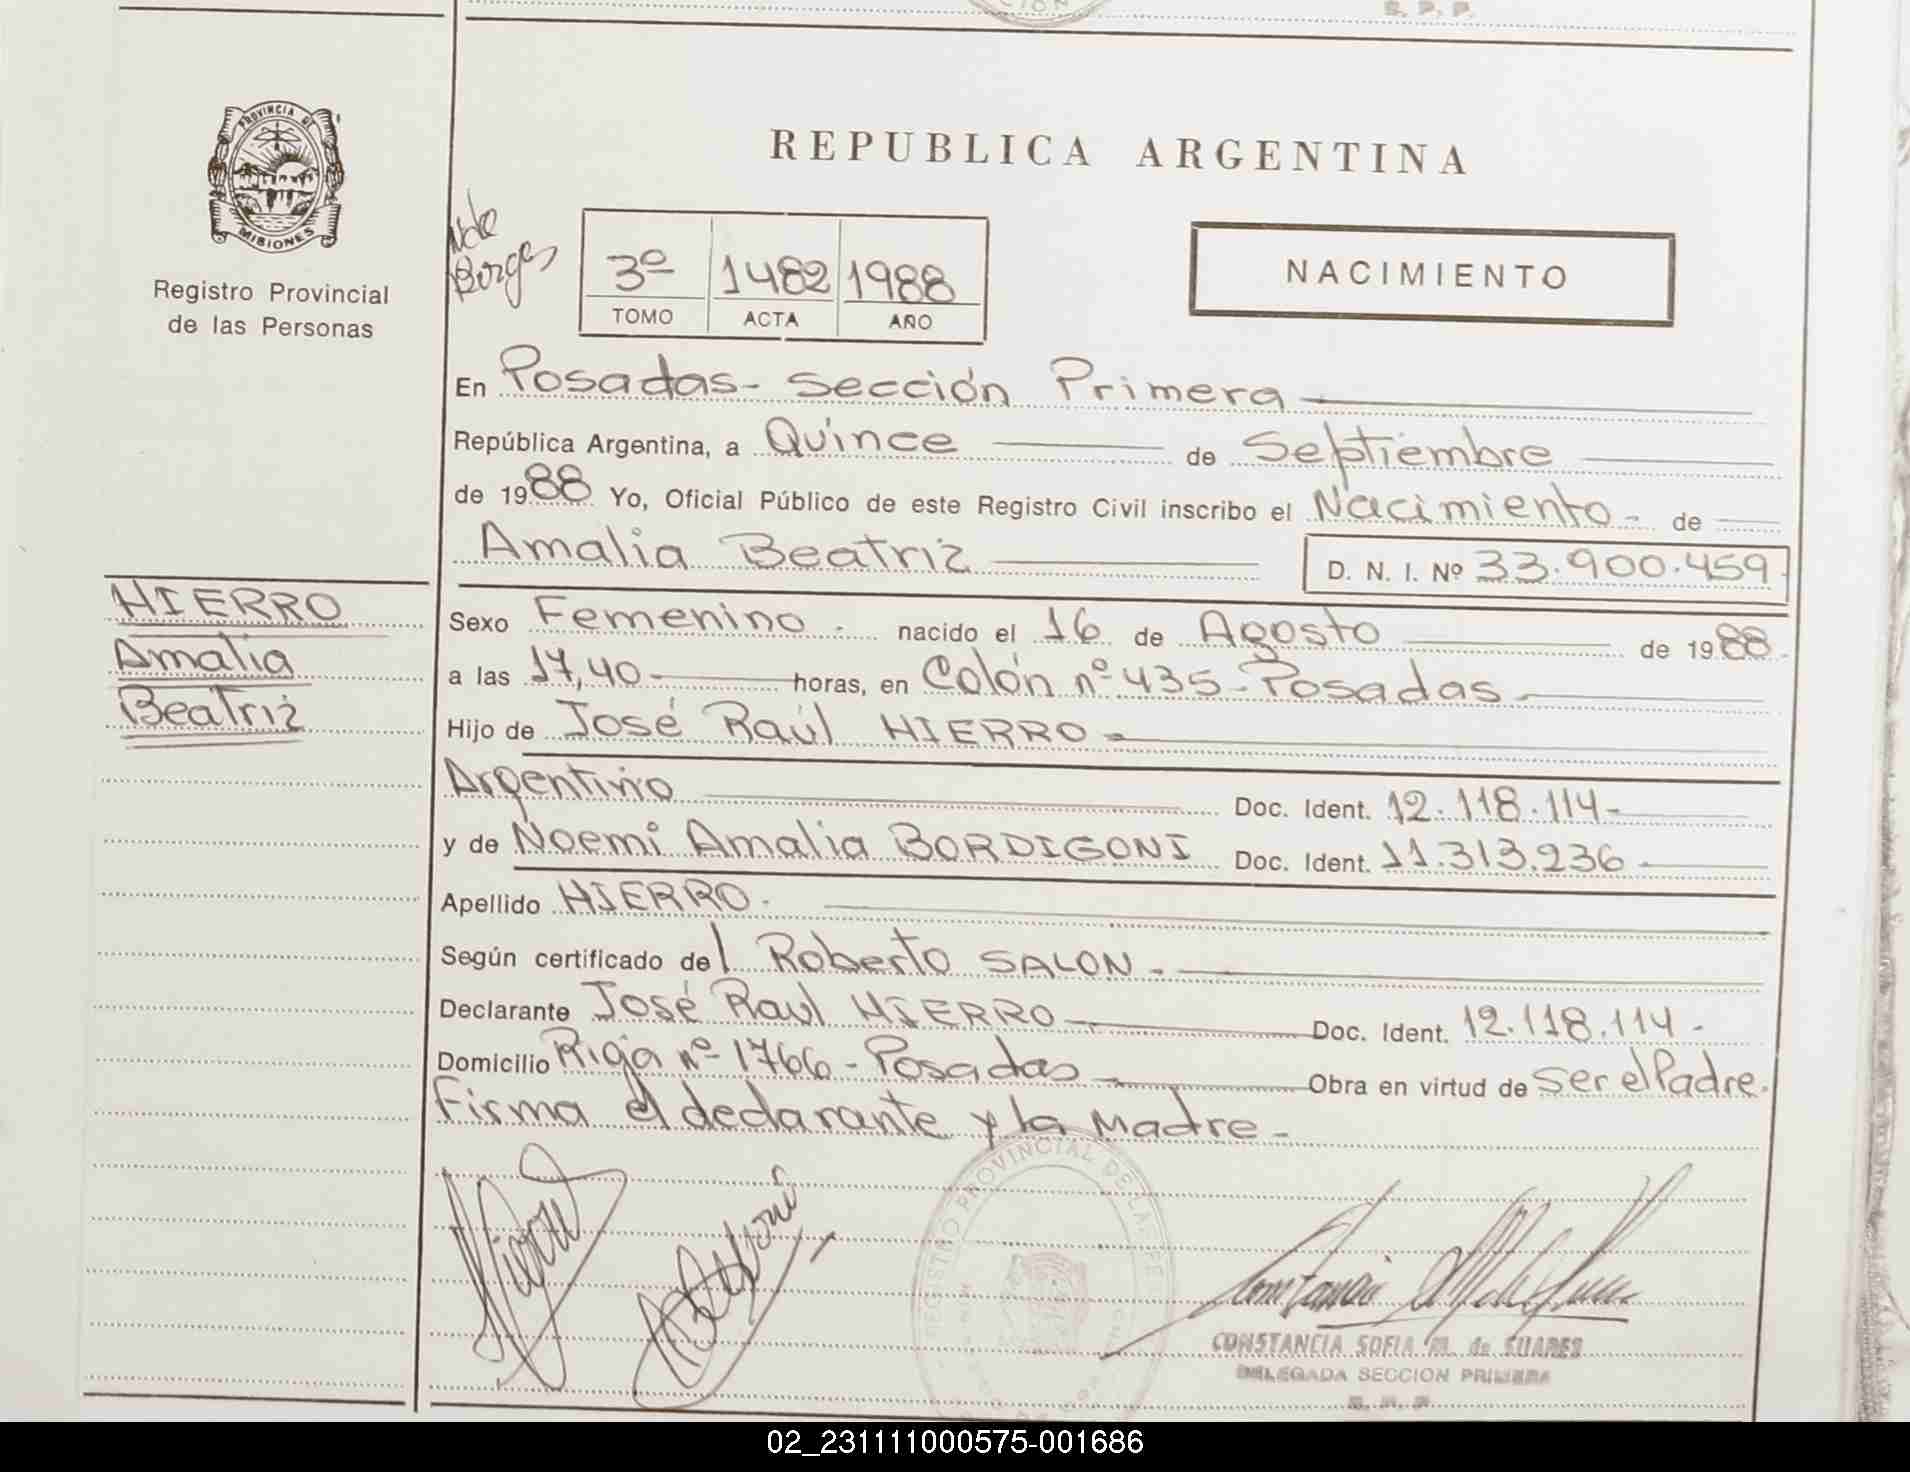 R. P. P.
PROVINCIA DE
MISIONES
Registro Provincial
de las Personas
REPUBLICA ARGENTINA
Borges
3º 1482 1988
TOMO ACTA AÑO
NACIMIENTO
En Posadas- Sección Primera
República Argentina, a Quince de Septiembre
de 1988 Yo, Oficial Público de este Registro Civil inscribo el Nacimiento - de
Amalia Beatriz
D. N. I. Nº 33.900.459
HIERRO
Amalia
Beatriz
Sexo Femenino - nacido el 16 de Agosto de 1988.
a las 17,40 horas, en Colón nº 435 - Posadas
Hijo de José Raúl HIERRO
Argentino Doc. Ident. 12.118.114-
y de Noemi Amalia BORDIGONI Doc. Ident. 11.313.236
Apellido HIERRO.
Según certificado del Roberto SALON.
Declarante José Raul HIERRO Doc. Ident. 12.118.114-
Domicilio Rioja nº 1766 - Posadas Obra en virtud de ser el Padre.
Firma el declarante y la Madre-
REGISTRO PROVINCIAL DE LAS PE
CONSTANCIA SOFIA M. de SUARES
DELEGADA SECCION PRIMERA
R. P. P.
02_231111000575-001686